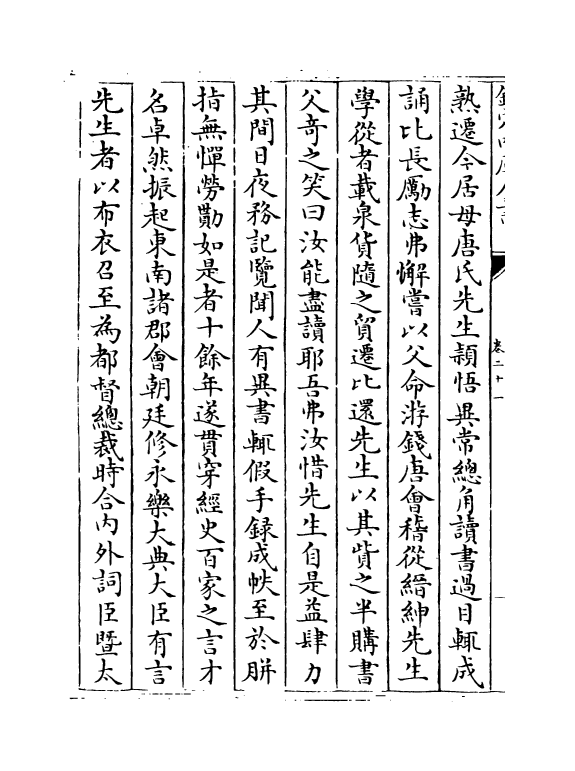 卷二十一
熟遷今居母唐氏先生頴悟異常總角讀書過目輒成
誦比長勵志弗懈嘗以父命游錢唐會稽從縉紳先生
學從者載泉貨隨之貿遷比還先生以其貲之半購書
父竒之笑曰汝能盡讀耶吾弗汝惜先生自是益肆力
其間日夜務記覽聞人有異書輒假手録成帙至於胼
指無憚勞勩如是者十餘年遂貫穿經史百家之言才
名卓然振起東南諸郡會朝廷修永樂大典大臣有言
先生者以布衣召至為都督總裁時合内外詞臣暨太